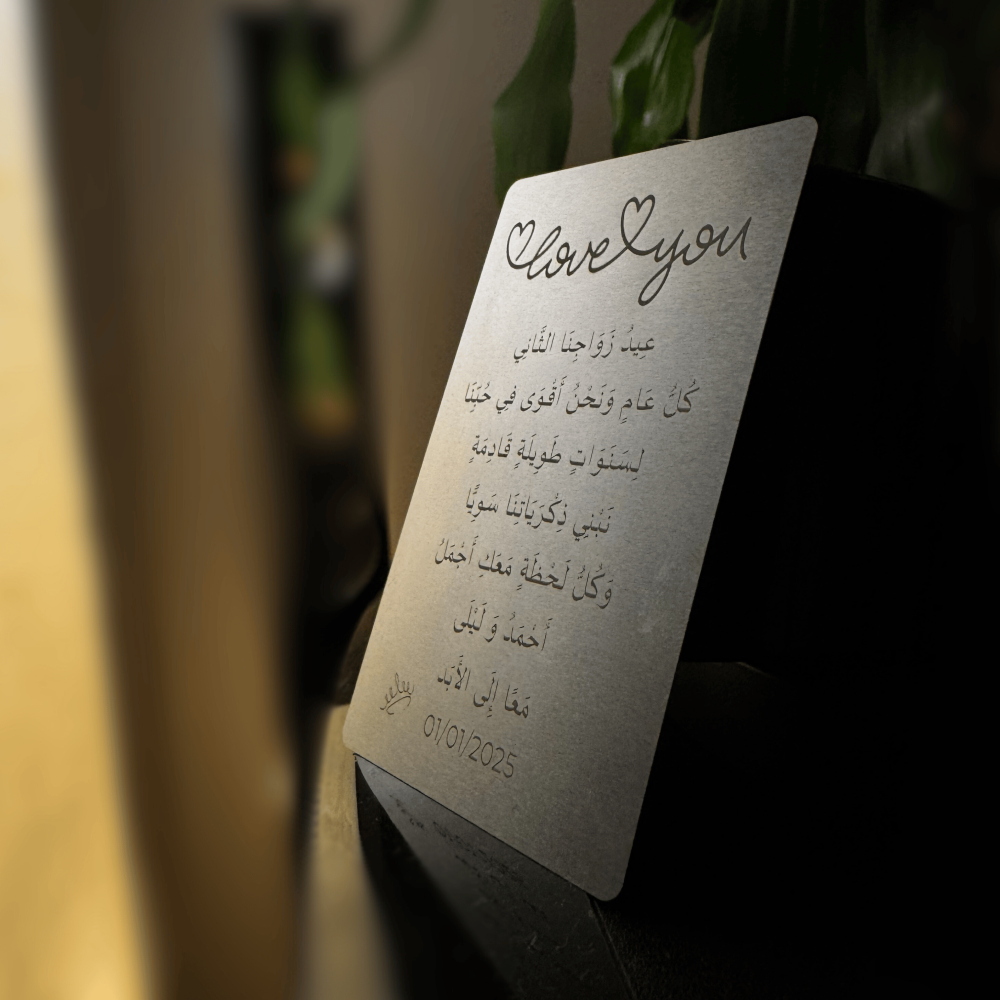 love you
عِيدُ زَوَاجِنَا الثَّانِي
كُلُّ عَامٍ وَنَحْنُ أَقْوَى فِي حُبِّنَا
لِسَنَوَاتٍ طَوِيلَةٍ قَادِمَةٍ
نَبْنِي ذِكْرَيَاتِنَا سَوِيًّا
وَكُلُّ لَحْظَةٍ مَعَكِ أَجْمَلُ
أَحْمَدُ وَ لَيْلَى
مَعًا إِلَى الأَبَد
01/01/2025